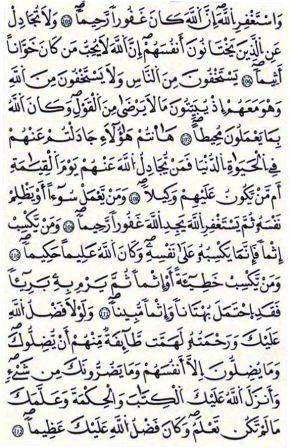 وَاسْتَغْفِرِ اللَّهَ إِنَّ اللَّهَ كَانَ غَفُورًا رَّحِيمًا ۝١٠٦ وَلَا تُجَادِلْ
عَنِ الَّذِينَ يَخْتَانُونَ أَنفُسَهُمْ إِنَّ اللَّهَ لَا يُحِبُّ مَن كَانَ خَوَّانًا
أَثِيمًا ۝١٠٧ يَسْتَخْفُونَ مِنَ النَّاسِ وَلَا يَسْتَخْفُونَ مِنَ اللَّهِ
وَهُوَ مَعَهُمْ إِذْ يُبَيِّتُونَ مَا لَا يَرْضَىٰ مِنَ الْقَوْلِ وَكَانَ اللَّهُ
بِمَا يَعْمَلُونَ مُحِيطًا ۝١٠٨ هَا أَنتُمْ هَٰؤُلَاءِ جَادَلْتُمْ عَنْهُمْ
فِي الْحَيَاةِ الدُّنْيَا فَمَن يُجَادِلُ اللَّهَ عَنْهُمْ يَوْمَ الْقِيَامَةِ
أَم مَّن يَكُونُ عَلَيْهِمْ وَكِيلًا ۝١٠٩ وَمَن يَعْمَلْ سُوءًا أَوْ يَظْلِمْ
نَفْسَهُ ثُمَّ يَسْتَغْفِرِ اللَّهَ يَجِدِ اللَّهَ غَفُورًا رَّحِيمًا ۝١١٠ وَمَن يَكْسِبْ
إِثْمًا فَإِنَّمَا يَكْسِبُهُ عَلَىٰ نَفْسِهِ وَكَانَ اللَّهُ عَلِيمًا حَكِيمًا ۝١١١
وَمَن يَكْسِبْ خَطِيئَةً أَوْ إِثْمًا ثُمَّ يَرْمِ بِهِ بَرِيئًا
فَقَدِ احْتَمَلَ بُهْتَانًا وَإِثْمًا مُّبِينًا ۝١١٢ وَلَوْلَا فَضْلُ اللَّهِ
عَلَيْكَ وَرَحْمَتُهُ لَهَمَّت طَّائِفَةٌ مِّنْهُمْ أَن يُضِلُّوكَ
وَمَا يُضِلُّونَ إِلَّا أَنفُسَهُمْ وَمَا يَضُرُّونَكَ مِن شَيْءٍ
وَأَنزَلَ اللَّهُ عَلَيْكَ الْكِتَابَ وَالْحِكْمَةَ وَعَلَّمَكَ
مَا لَمْ تَكُن تَعْلَمُ وَكَانَ فَضْلُ اللَّهِ عَلَيْكَ عَظِيمًا ۝١١٣